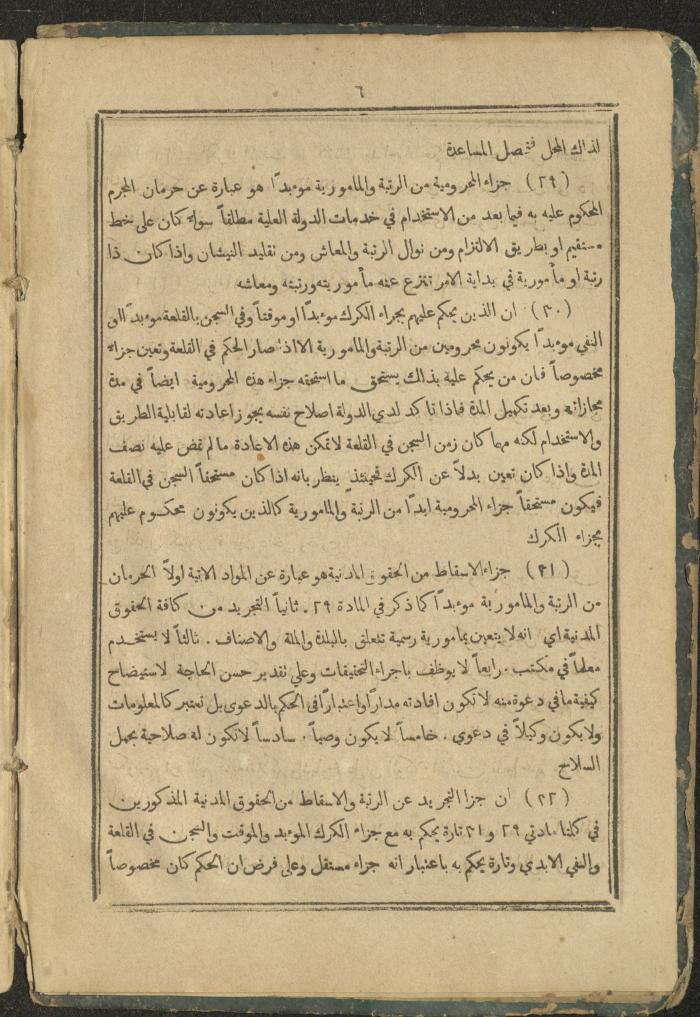 ٦
لذلك المحل فتحصل المساعدة
(٢٩) جزاء المحرومية من الرتبة والمامورية موءبدًا هو عبارة عن حرمان المجرم
المحكوم عليه به فيما بعد من الاستخدام في خدمات الدولة العلية مطلقاً سواء كان على خط
مستقيم او بطريق الالتزام ومن نوال الرتبة والمعاش ومن تقليد النيشان واذا كان ذا
رتبة او مأمورية في بداية الامر تنزع عنه مأموريته ورتبته ومعاشه
(٣٠) ان الذين يحكم عليهم بجزاء الكرك موءبدًا او موقتاً وفي السجن بالقلعة موءبدًا او
النفي موءبدًا يكونون محرومين من الرتبة والمامورية الا اذا صار الحكم في القلعة وتعين جزاء
مخصوصاً فان من يحكم عليه بذلك يستحق ما استحقه جزاء هذه المحرومية ايضاً في مدة
مجازاته وبعد تكميل المدة فاذا تاكد لدي الدولة اصلاح نفسه يجوز اعادته لقابلية الطريق
والاستخدام لكنه مهما كان زمن السجن في القلعة لا تمكن هذه الاعادة ما لم تمض عليه نصف
المدة واذا كان تعين بدلاً عن الكرك فحينئذٍ ينظر بانه اذا كان مستحقاً السجن في القلعة
فيكون مستحقاً جزاء المحرومية ابدًا من الرتبة والمامورية كالذين يكونون محكوم عليهم
بجزاء الكرك
(٣١) جزاء الاسقاط من الحقوق المدنية هو عبارة عن المواد الاتية اولاً الحرمان
من الرتبة والمامورية موءبدًا كما ذكر في المادة ٢٩. ثانياً التجريد من كافة الحقوق
المدنية اي انه لا يتعين بمامورية رسمية تتعلق بالبلدة والملة والاصناف. ثالثاً لا يستخدم
معلماً في مكتب. رابعاً لا يوظف باجراء التحقيقات وعلي تقدير حسن الحاجة لاستيضاح
كيفية ما في دعوة منه لا تكون افادته مدارًا واعتبارًا في الحكم بالدعوى بل تعتبر كالمعلومات
ولا يكون وكيلاً في دعوي. خامساً لا يكون وصياً. سادساً لا تكون له صلاحية بحمل
السلاح
(٣٢) ان جزا التجريد عن الرتبة والاسقاط من الحقوق المدنية المذكورين
في كلتا مادتي ٢٩ و٣١ تارة يحكم به مع جزاء الكرك الموءبد والموقت والسجن في القلعة
والنفي الابدي وتارة يحكم به باعتبار انه جزاء مستقل وعلى فرض ان الحكم كان مخصوصاً